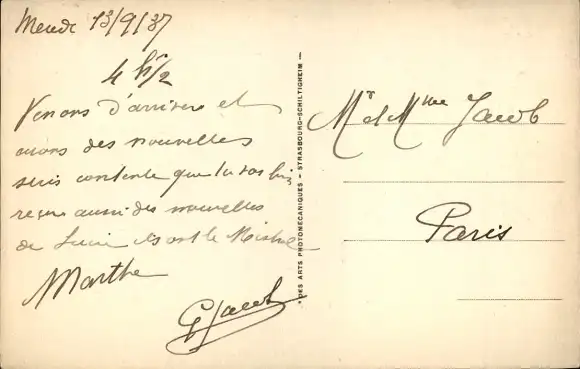 Mende 13/9/37
4 h 1/2
Venons d'arriver et
avons des nouvelles
suis contente que tu vas
reçu aussi des nouvelles
de Lucie
Marthe
G Jacob
DES ARTS PHOTOMÉCANIQUES - STRASBOURG-SCHILTIGHEIM -
Mr et Mme Jacob
Paris